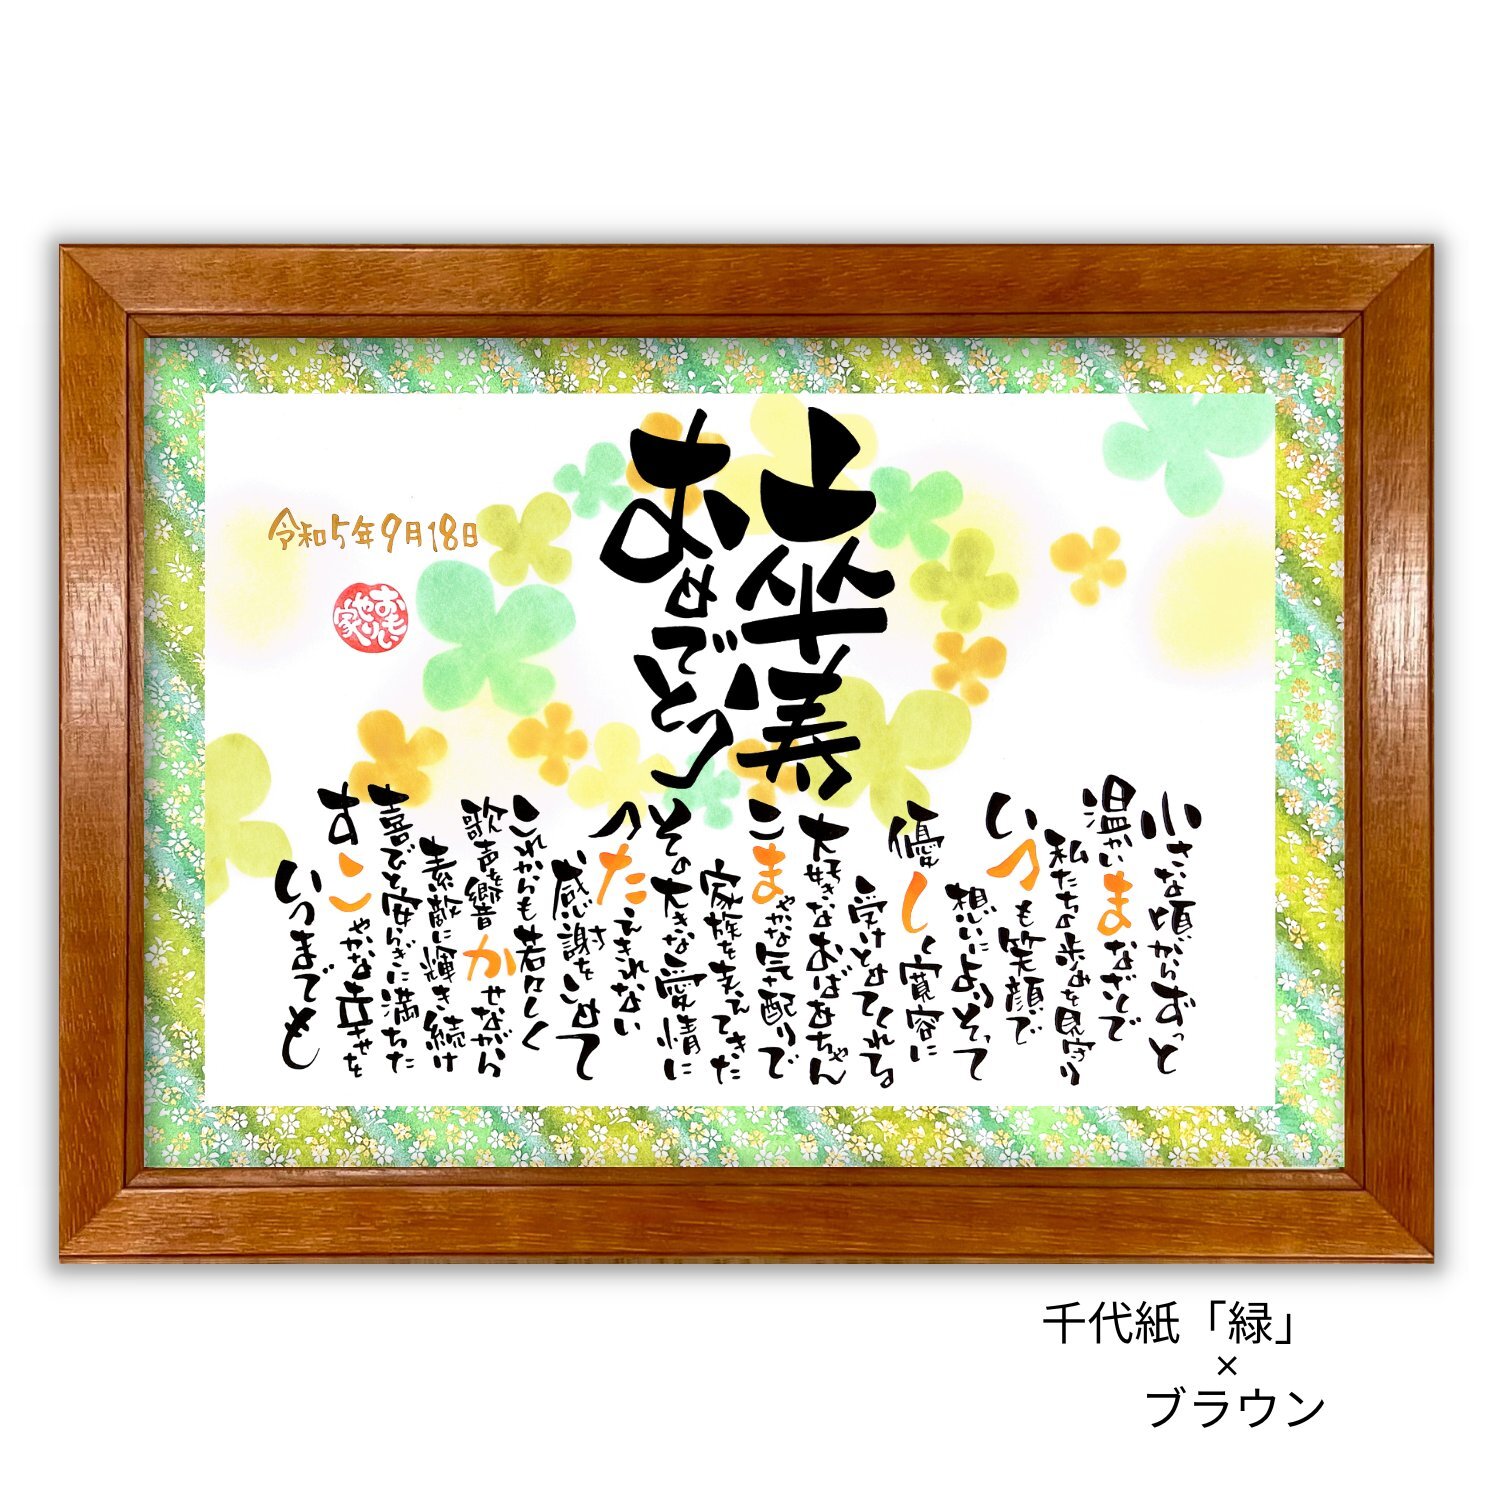 卒寿
おめでとう
小さな頃からずっと
温かいまなざしで
私たちの歩みを見守り
いつも笑顔で
想いによりそって
優しく寛容に
受けとめてくれる
大好きなおばあちゃん
こまやかな気配りで
家族を支えてきた
その大きな愛情に
つたえきれない
感謝をこめて
これからも若々しく
歌声を響かせながら
素敵に輝き続け
喜びと安らぎに満ちた
すこやかな幸せを
いつまでも
令和5年9月18日
おもいやり家
千代紙「緑」
×
ブラウン